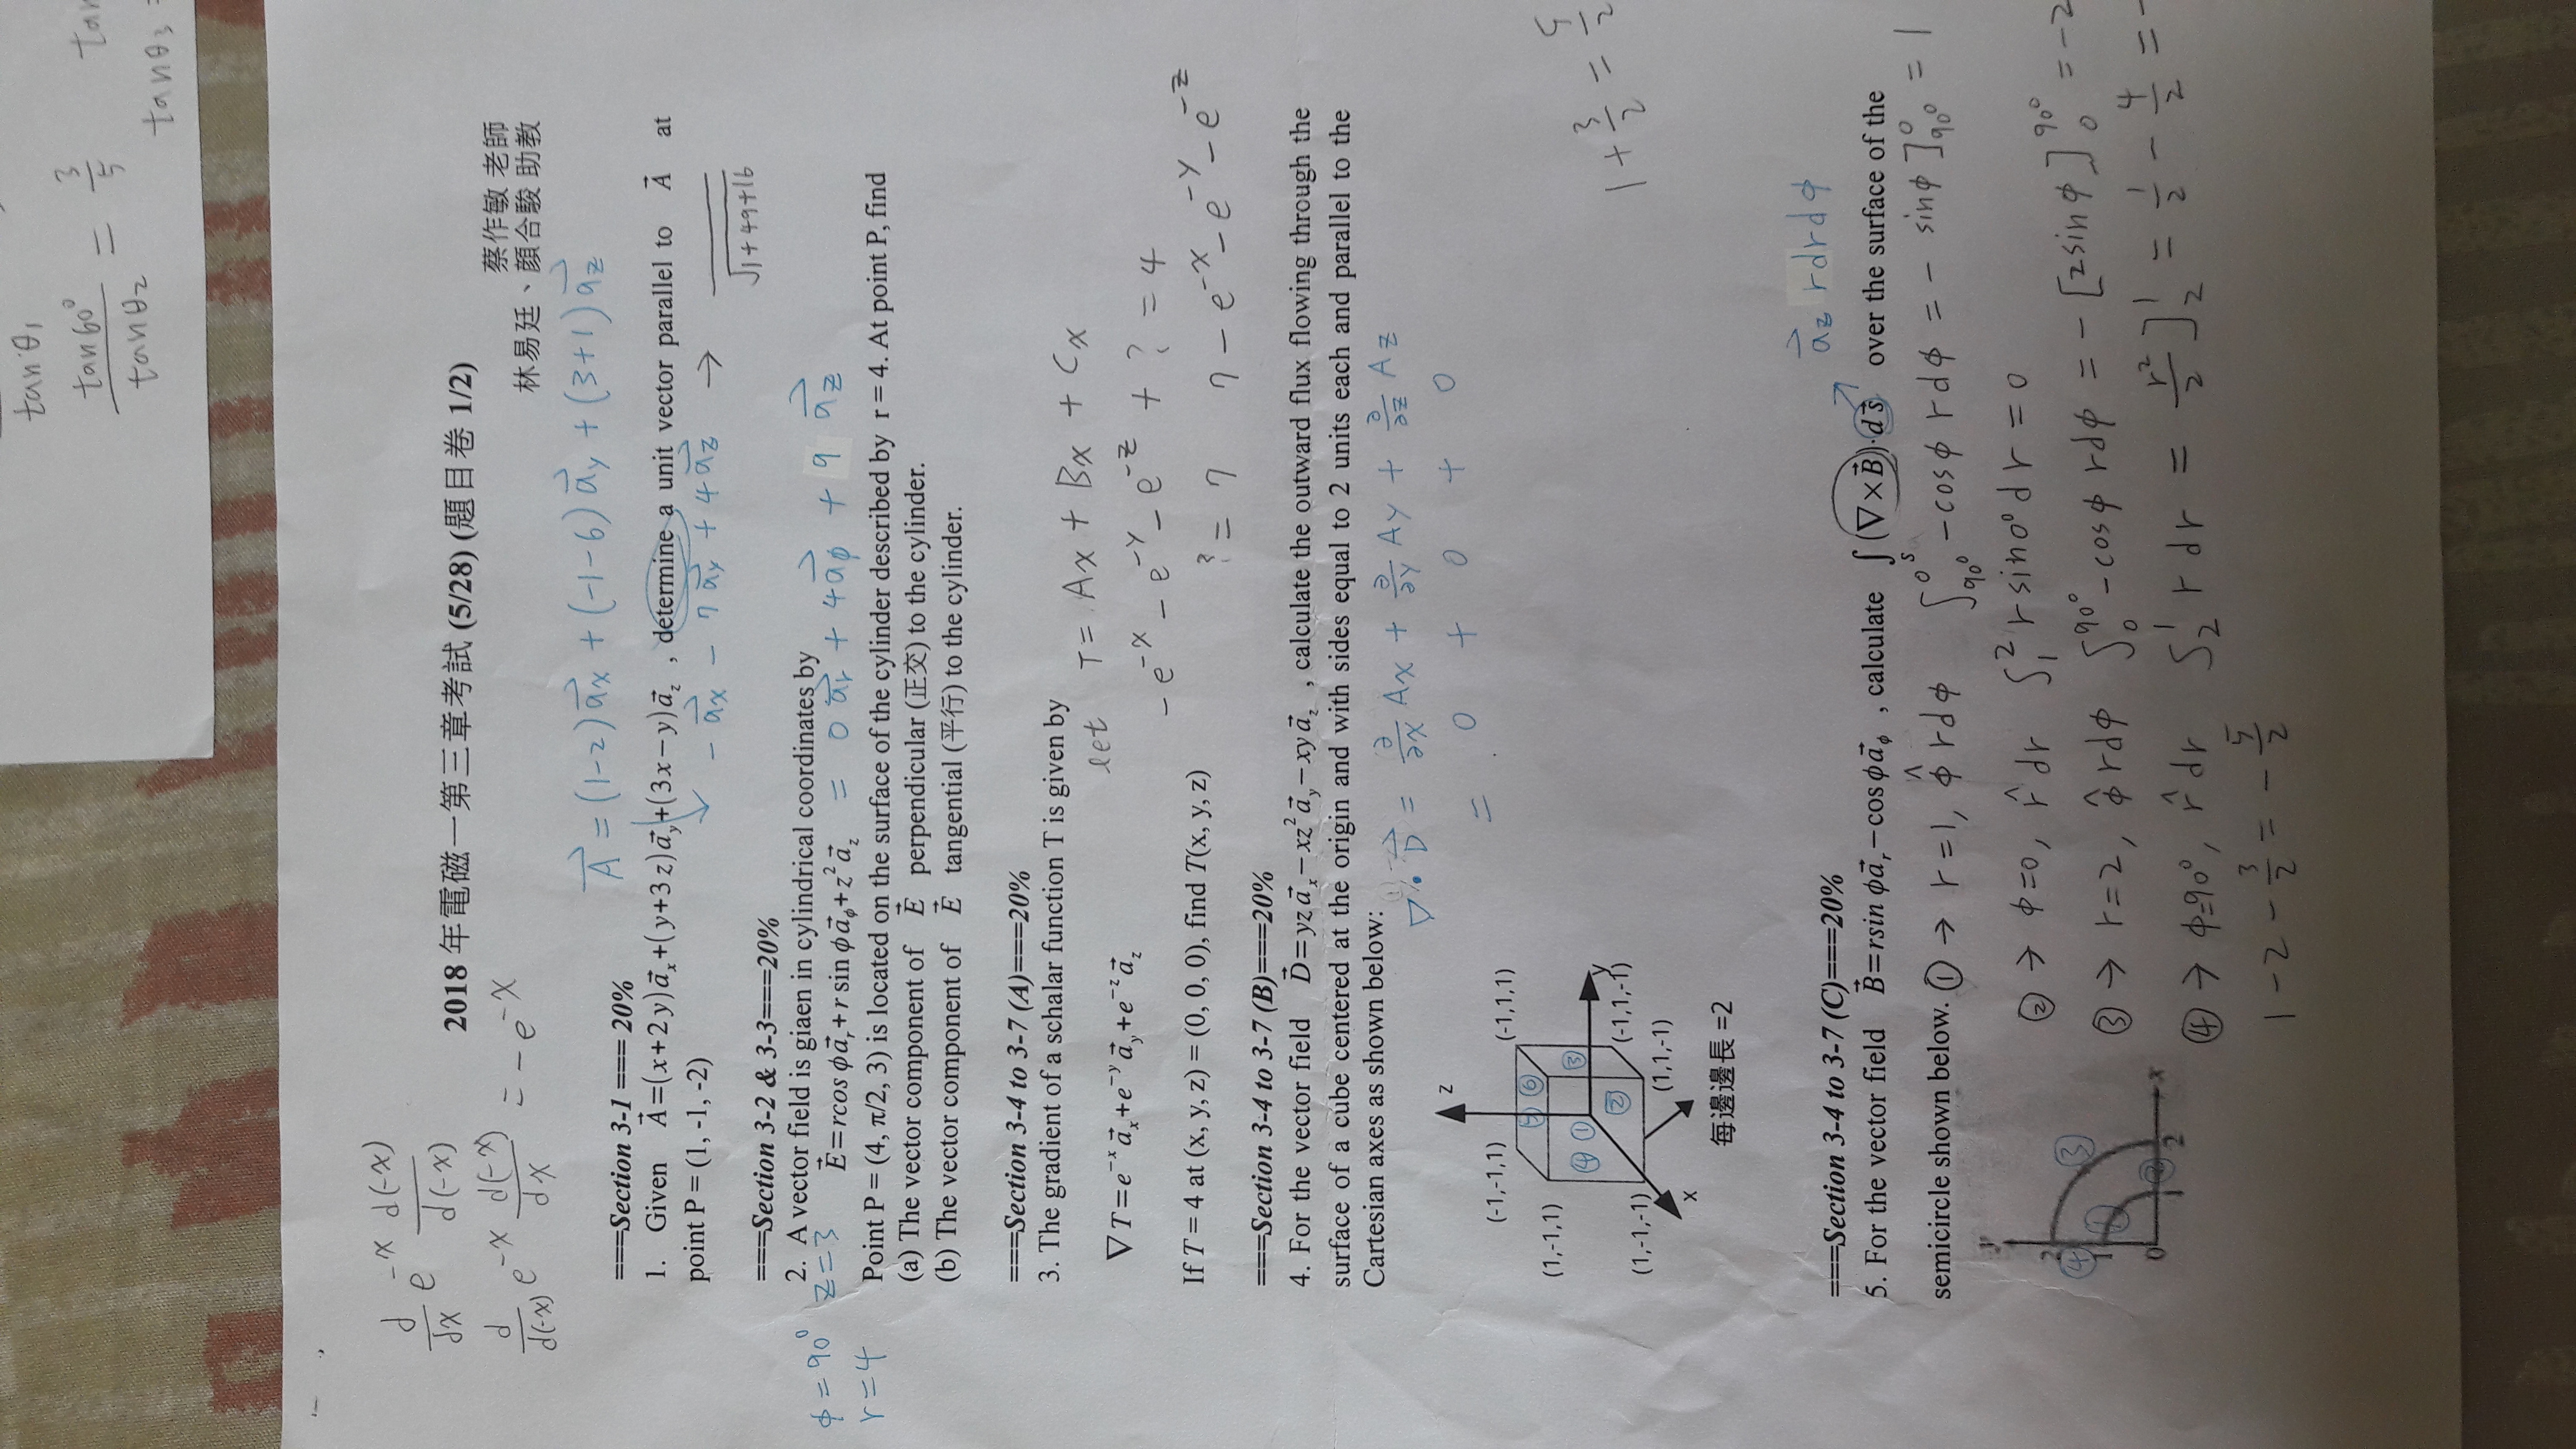 tanθ₁
tan60° / tanθ₂ = 3/5
tanθ₃
d/dx e^-x d(-x)/d(-x)
d/d(-x) e^-x d(-x)/dx = -e^-x
2018 年電磁一第三章考試 (5/28) (題目卷 1/2)
蔡作敏 老師
林易廷、顏合駿 助教
A⃗ = (1-2)a⃗x + (-1-6)a⃗y + (3+1)a⃗z
===Section 3-1 === 20%
1. Given A⃗=(x+2y)a⃗x+(y+3z)a⃗y+(3x−y)a⃗z , determine a unit vector parallel to A⃗ at
point P = (1, -1, -2)
- a⃗x - 7a⃗y + 4a⃗z → / √1+49+16
===Section 3-2 & 3-3===20%
2. A vector field is giaen in cylindrical coordinates by
φ=90° z=3
r=4
E⃗=rcos φa⃗r+r sin φa⃗φ+z²a⃗z = 0a⃗r + 4a⃗φ + 9 a⃗z
Point P = (4, π/2, 3) is located on the surface of the cylinder described by r = 4. At point P, find
(a) The vector component of E⃗ perpendicular (正交) to the cylinder.
(b) The vector component of E⃗ tangential (平行) to the cylinder.
===Section 3-4 to 3-7 (A)===20%
3. The gradient of a schalar function T is given by
let T= Ax + Bx + Cx
∇T=e^−x a⃗x+e^−y a⃗y+e^−z a⃗z
-e^-x - e^-y - e^-z + ? = 4
If T = 4 at (x, y, z) = (0, 0, 0), find T(x, y, z)
? = 7 7 - e^-x - e^-y - e^-z
===Section 3-4 to 3-7 (B)===20%
4. For the vector field D⃗=yz a⃗x−xz²a⃗y−xy a⃗z , calculate the outward flux flowing through the
surface of a cube centered at the origin and with sides equal to 2 units each and parallel to the
Cartesian axes as shown below:
∇·D⃗ = ∂/∂x Ax + ∂/∂y Ay + ∂/∂z Az
= 0 + 0 + 0
z
(-1,-1,1)
(-1,1,1)
⑤ ⑥
(1,-1,1)
④ ① ③
y
②
(-1,1,-1)
(1,-1,-1)
(1,1,-1)
x
每邊邊長 =2
1 + 3/2 = 5/2
a⃗z rdrdφ
===Section 3-4 to 3-7 (C)===20%
5. For the vector field B⃗=rsin φa⃗r−cos φa⃗φ , calculate ∫s (∇×B⃗)·ds⃗ over the surface of the
semicircle shown below. ① → r=1, φ̂ rdφ ∫90°^0° -cosφ rdφ = - sinφ ]90°^0 = 1
② → φ=0, r̂ dr ∫1^2 r sin0° dr = 0
③ → r=2, φ̂ rdφ ∫0^90° -cosφ rdφ = - [2sinφ]0^90° = -2
④ → φ=90°, r̂ dr ∫2^1 r dr = r²/2 ]2^1 = 1/2 - 4/2 = -
1-2-3/2 = -5/2
y
2
④ ③
1 ①
0 1 ② 2 x